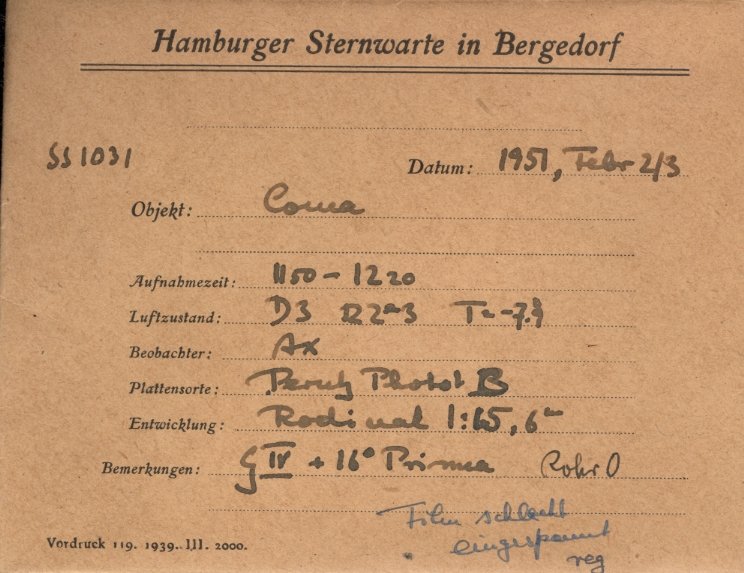 Hamburger Sternwarte in Bergedorf
SS 1031
Datum: 1951, Febr 2/3
Objekt: Coma
Aufnahmezeit: 11 50 - 12 20
Luftzustand: D3 R2-3 T=-7.
Beobachter: Ax
Plattensorte: Perutz Photot
B
Entwicklung: Rodinal 1:65, 6
Bemerkungen: G IV + 16° Prisma Rohr O
Film schlecht
eingespannt
reg
Vordruck 119. 1939. III. 2000.